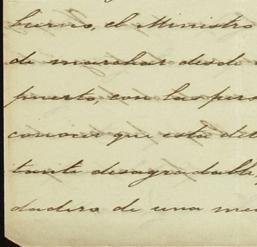 bierno, el Ministro
de marchar desde
puerto, con las pers
conocer que esta det
tante desagradable,
dadero de una me